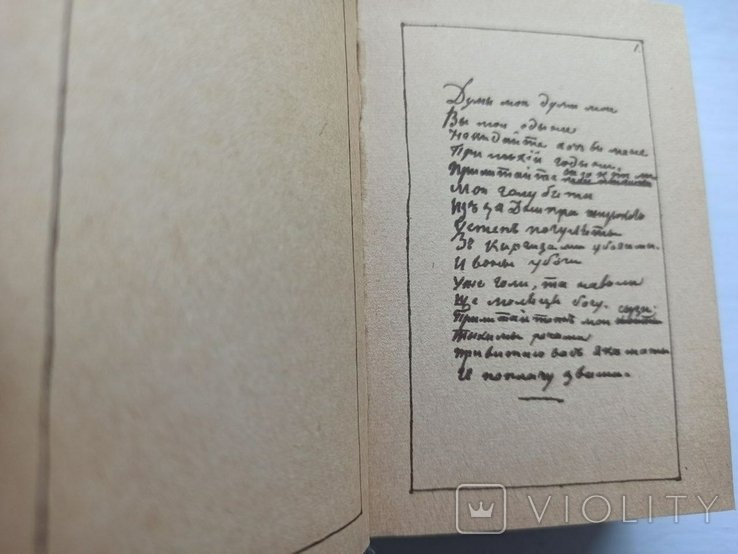 1.
Думы мои думы мои
Вы мои едыни
Некидайте хочъ вы мене
При лыхій годыни.
Прилитайте
Мои голубята
Изъ за Днипра широкого
У степъ погуляты
Зъ Киргизами убогими.
И воны убоги
Уже голи, та наволи
Ще молятця богу.
Прилитайтежъ мои
Тыхими речами
Привитаю васъ
И поплачу зъ вами.
VIOLITY